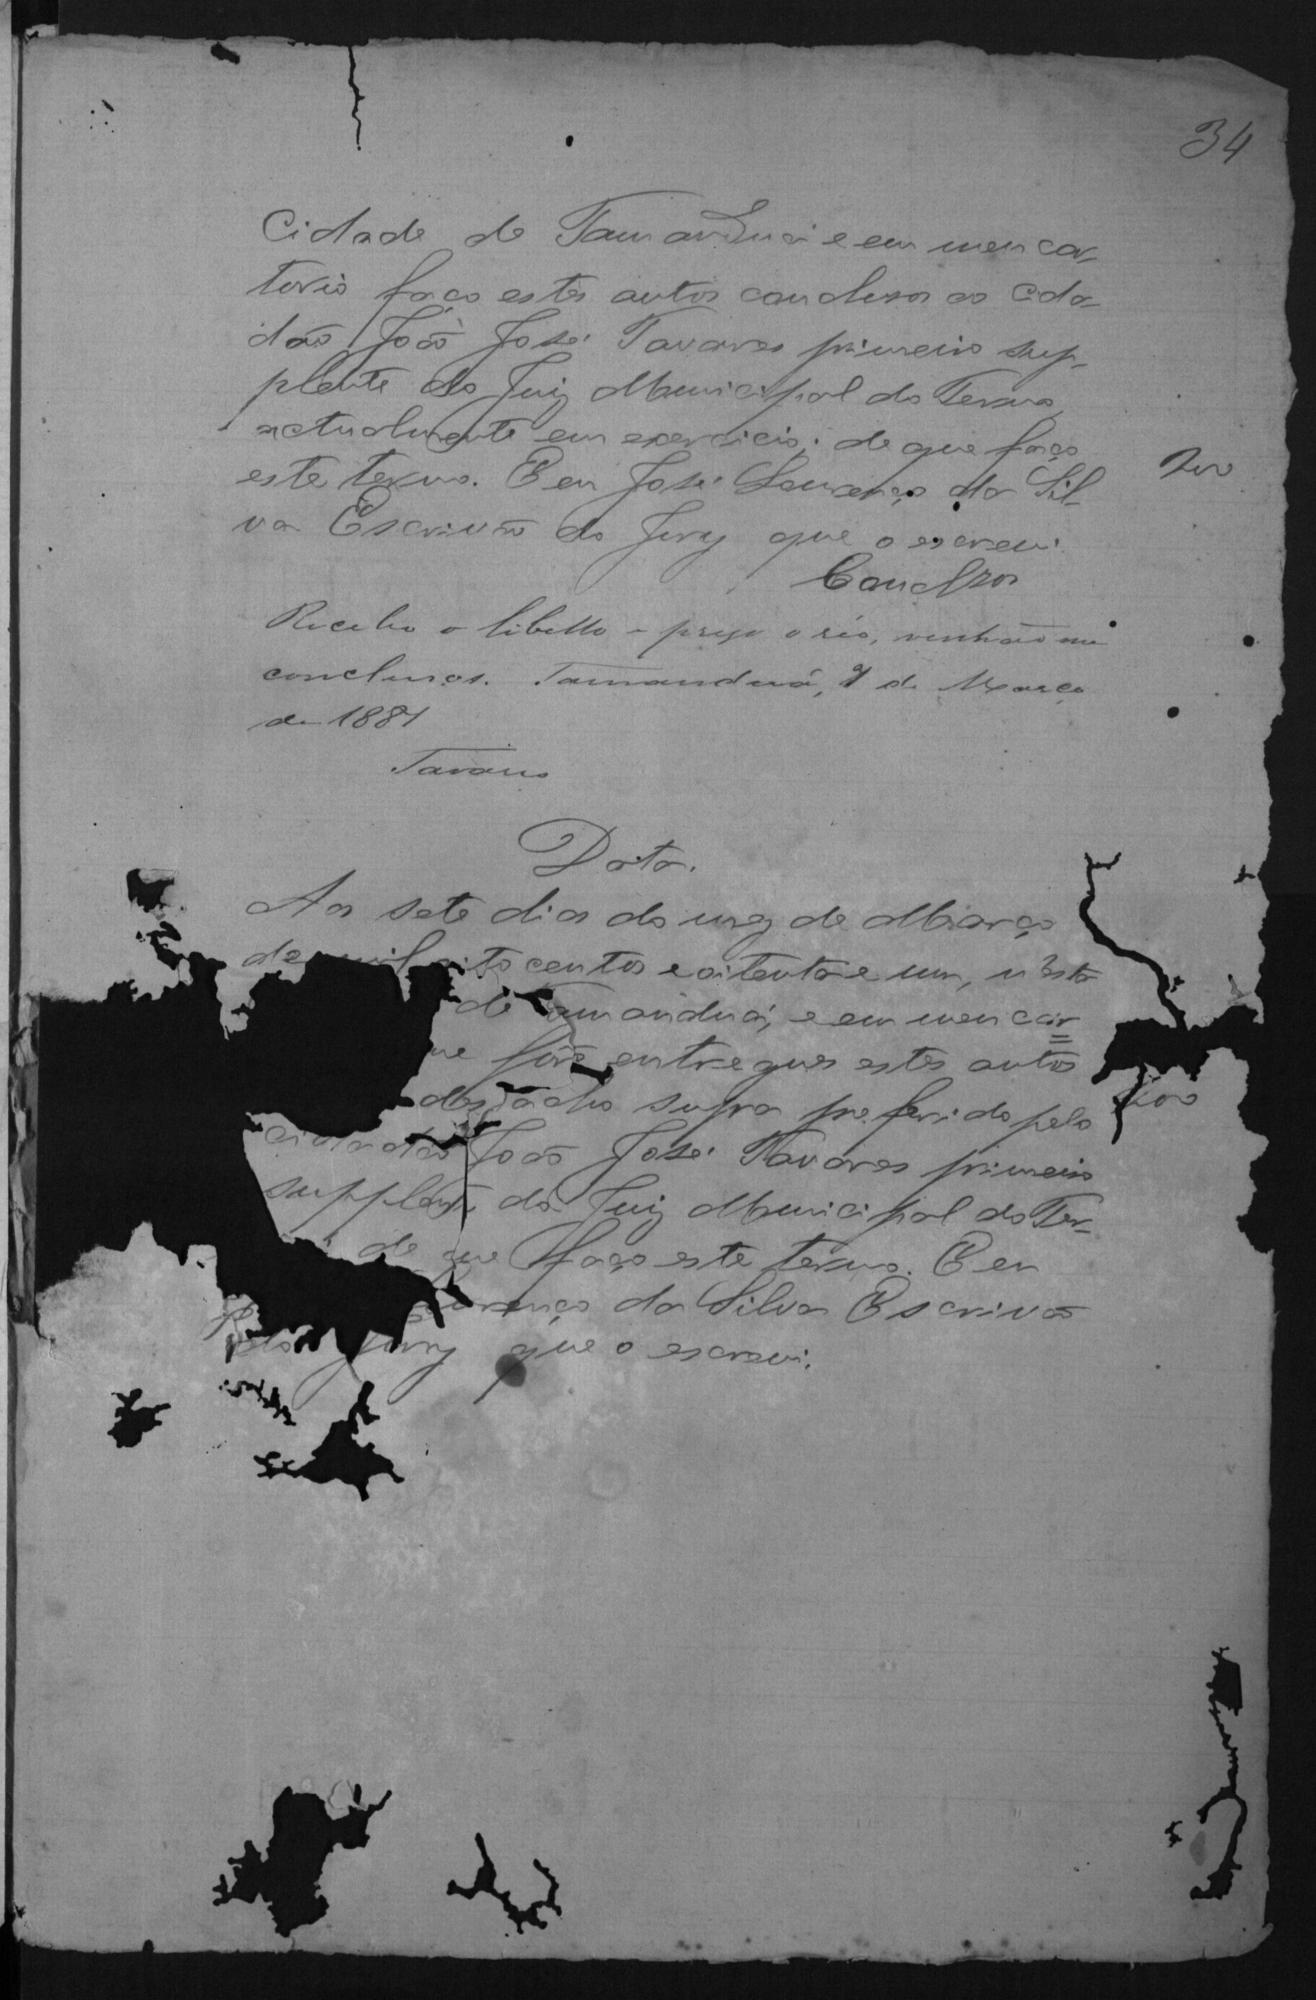 34
Cidade de Tamanduá e em meu car-
torio faço estes autos conclusos ao Cida-
dão João José Tavares primeiro sup-
plente do Juiz Municipal do Termo
actualmente em exercicio; de que faço
este termo. E eu José Lourenço da Sil-
va Escrivão do Jury que o escrevi.
200
Conclsos
Recebo o libello - o réo, venhão me
conclusos. Tamanduá, 7 de Março
de 1881
Tavares
Data.
Aos sete dias do mez de Março
de mil oito centos e oitenta e um, n'esta
de Tamanduá, e em meu car
me fôrão entregues estes autos
despacho supra proferido pelo
200
cidadão João José Tavares primeiro
supplente do Juiz Municipal do Ter-
de que faço este termo. E eu
ourenço da Silva Escrivão
do Jury que o escrevi.